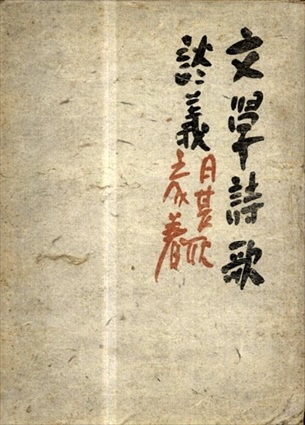 文學詩歌
談義
日夏耿
之介著